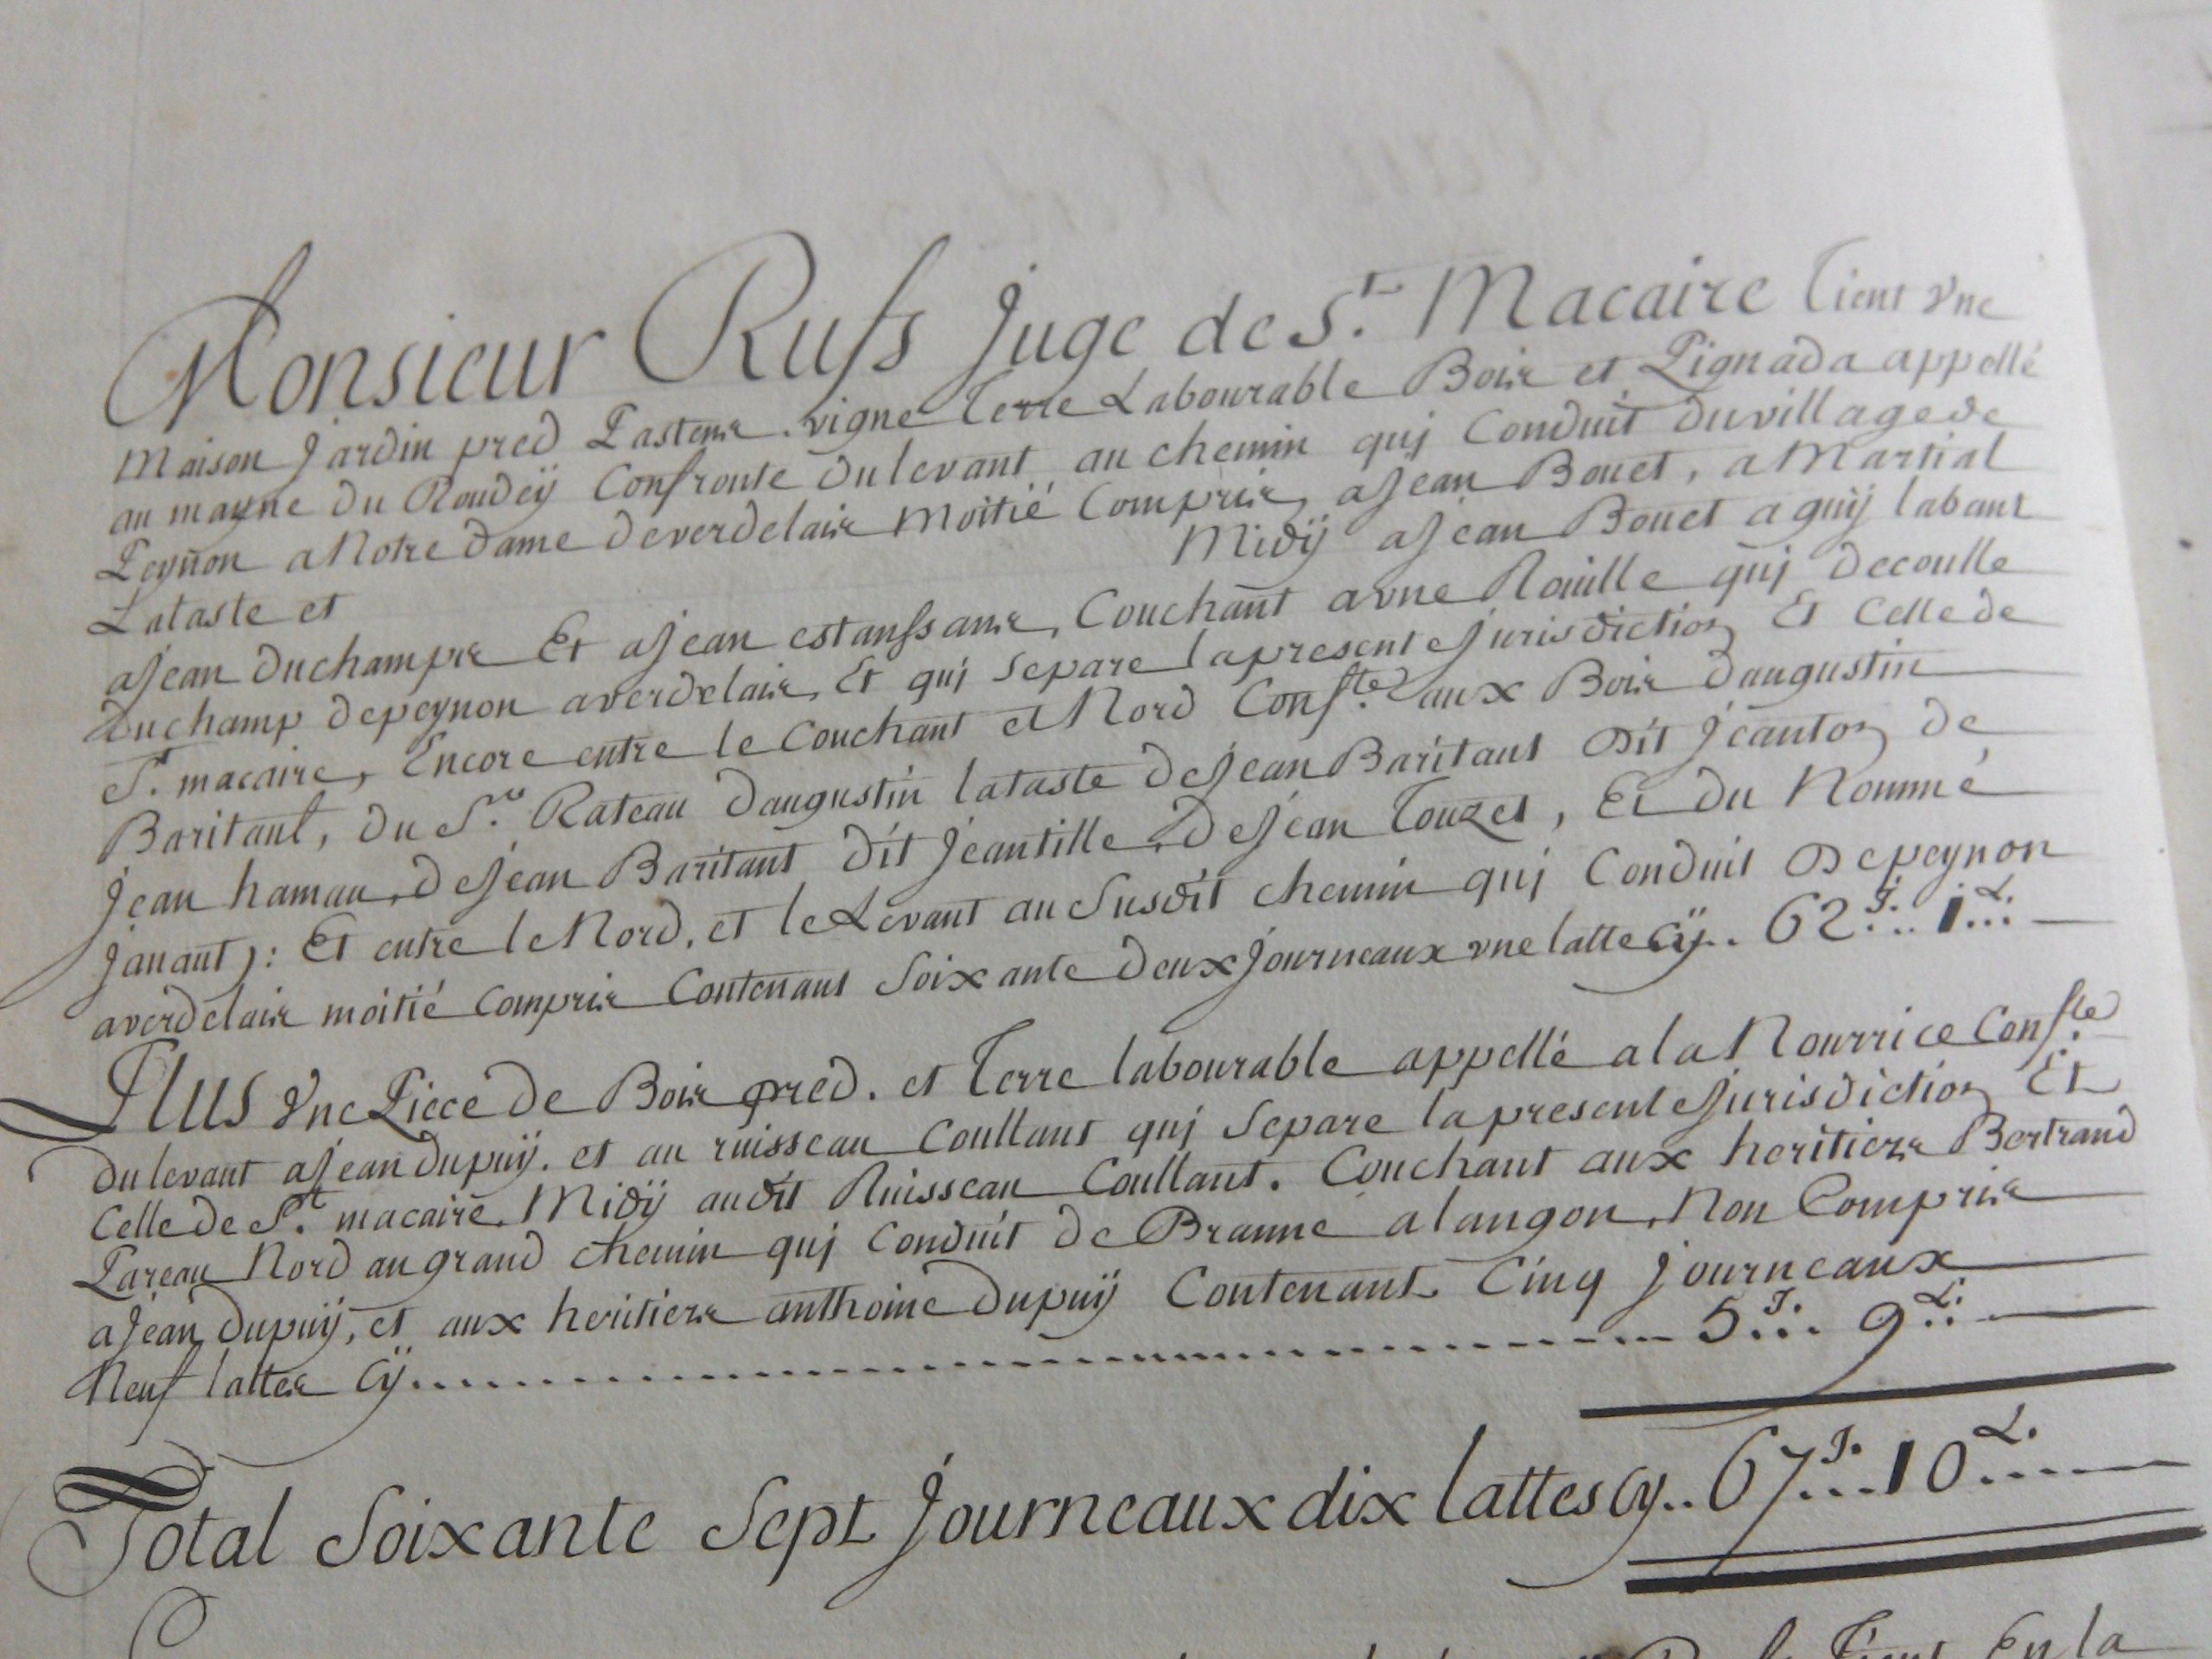 Monsieur Rufs Juge de S.t Macaire Tient vne
Maison Jardin pred Pastenc vigne Terre Labourable Bois et Pignada appellé
au mayne du Roudeÿ Confronte du levant au chemin quj Conduit du village de
Peynon a Notre dame de verdelais Moitié Compris, a Jean Bouet, a Martial
Lataste et Midÿ a Jean Bouet a guÿ labant
a Jean duchamps Et a Jean estanssans, Couchant a vne Rouille quj decoulle
duchamp de peynon a verdelais, Et quj Separe la presente Jurisdiction Et Celle de
S.t macaire, Encore entre le Couchant et Nord Conf.te aux Bois d'augustin
Baritaut, du S.r Rateau d'augustin lataste de Jean Baritaut dit Jeanton de
Jean hamau, de Jean Baritaut dit Jeantille, de Jean Touzet, Et du Nommé
Janaut): Et entre le Nord, et le Levant au Susdit chemin quj Conduit de peynon
a verdelais moitié compris Contenant Soixante deux Journeaux vne latte Cÿ.. 62 J... 1 L...
Plus vne Piece de Bois pred. et Terre labourable appellé a la Nourrice Conf.te
du levant a Jean dupuÿ. et au ruisseau Coullant quj Separe la presente Jurisdiction Et
Celle de S.t macaire, Midÿ audit Ruisseau Coullant. Couchant aux heritiers Bertrand
Pareau Nord au grand chemin quj Conduit de Branne a langon, Non Compris
a Jean dupuÿ, et aux heritiers anthoine dupuÿ Contenant Cinq Journeaux
Neuf lattes Cÿ.......... 5 J... 9 L...
Total Soixante Sept Journeaux dix lattes Cy.. 67 J... 10 L....
Tient En la